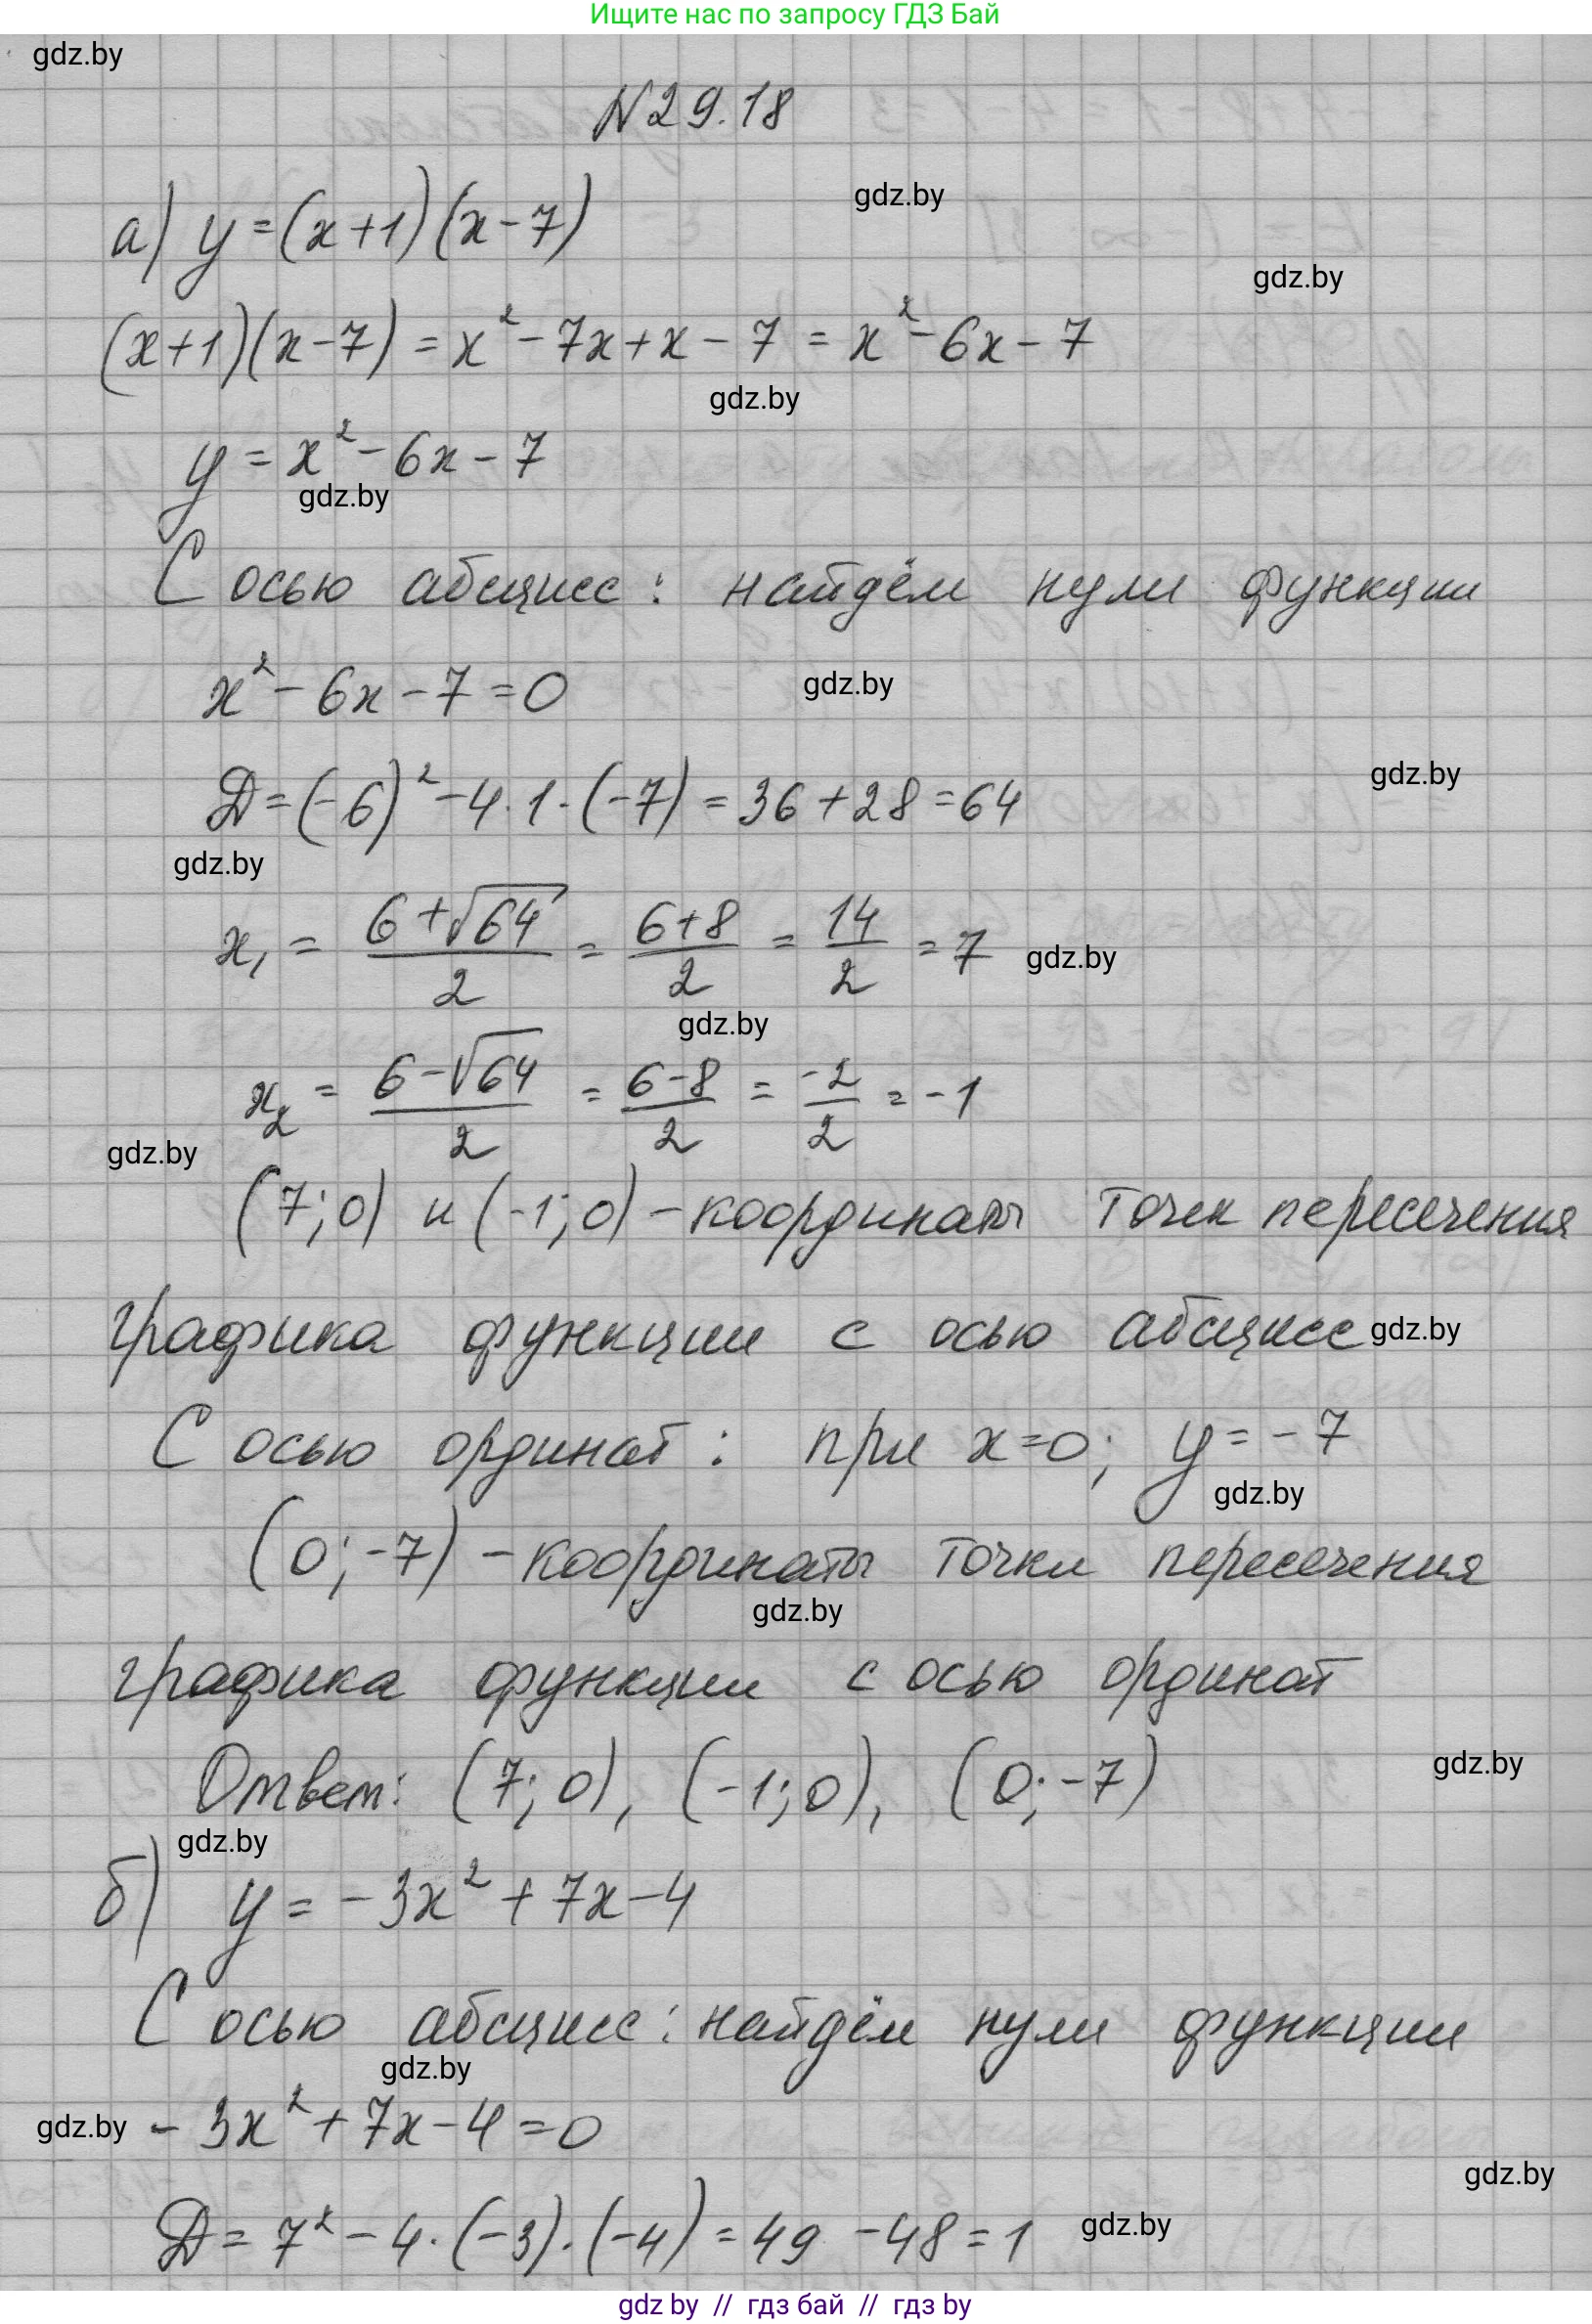 Ищите нас по запросу ГДЗ Бай
gdz.by
N29.18
а) y=(x+1)(x-7)
gdz.by
gdz.by
(x+1)(x-7) = x²-7x+x-7 = x²-6x-7
gdz.by
y=x²-6x-7
gdz.by
С осью абсцисс: найдём нули функции
x²-6x-7=0
gdz.by
gdz.by
Д=(-6)²-4·1·(-7)=36+28=64
gdz.by
x₁ = (6+√64)/2 = (6+8)/2 = 14/2 = 7
gdz.by
gdz.by
x₂ = (6-√64)/2 = (6-8)/2 = -2/2 = -1
gdz.by
(7;0) и (-1;0) - координаты точек пересечения
графика функции с осью абсцисс
gdz.by
С осью ординат: при x=0; y=-7
gdz.by
(0;-7) - координаты точки пересечения
gdz.by
графика функции с осью ординат
Ответ: (7;0), (-1;0), (0;-7)
gdz.by
gdz.by
б) y=-3x²+7x-4
С осью абсцисс: найдём нули функции
gdz.by
gdz.by
-3x²+7x-4=0
gdz.by
Д=7²-4·(-3)·(-4)=49-48=1
gdz.by
gdz by // гдз бай // гдз by